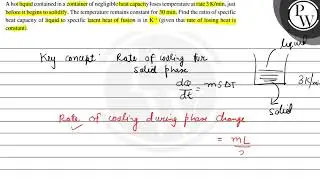 A hot liquid contained in a container of negligible heat capacity loses temperature at rate 3 K/min, just
before it begins to solidify. The temperature remains constant for 30 min. Find the ratio of specific
heat capacity of liquid to specific latent heat of fusion is in K⁻¹ (given that rate of losing heat is
constant).
PW
Key concept: Rate of cooling for
solid phase
dQ/dt = msΔT
liquid
3 K/min
solid
Rate of cooling during phase change
= mL